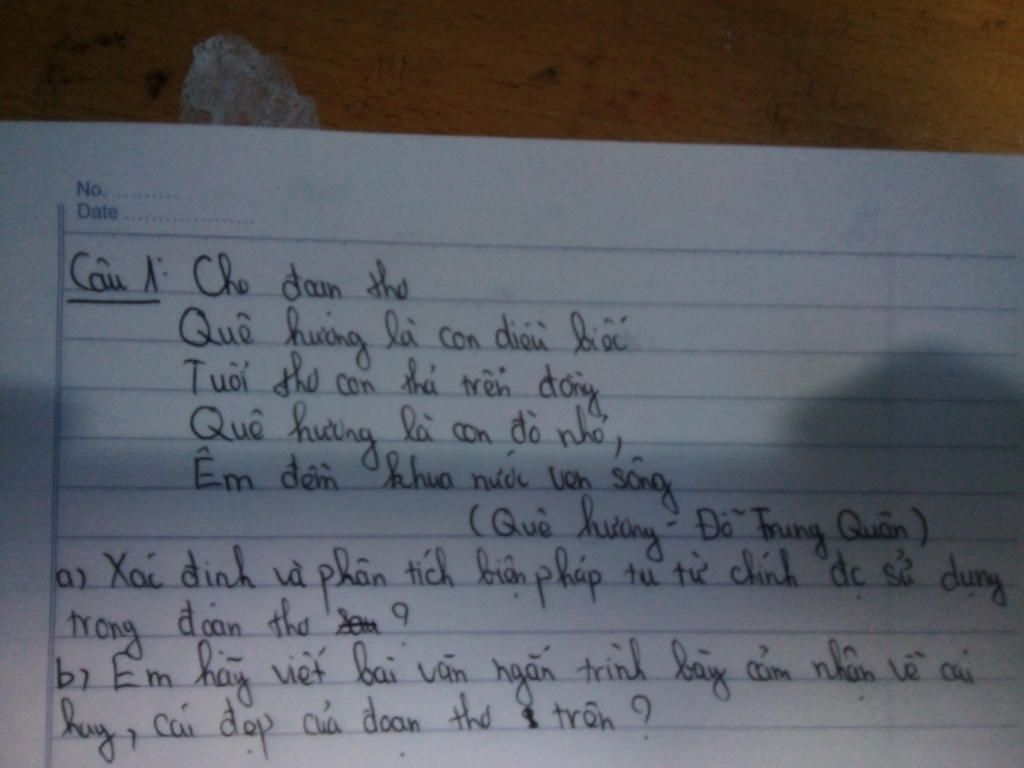 No. ..........
Date ....................
Câu 1: Cho đoạn thơ
Quê hương là con diều biếc
Tuổi thơ con thả trên đồng
Quê hương là con đò nhỏ,
Êm đềm khua nước ven sông
(Quê hương - Đỗ Trung Quân)
a) Xác định và phân tích biện pháp tu từ chính đc sử dụng
trong đoạn thơ ?
b) Em hãy viết bài văn ngắn trình bày cảm nhận về cái
hay, cái đẹp của đoạn thơ trên ?